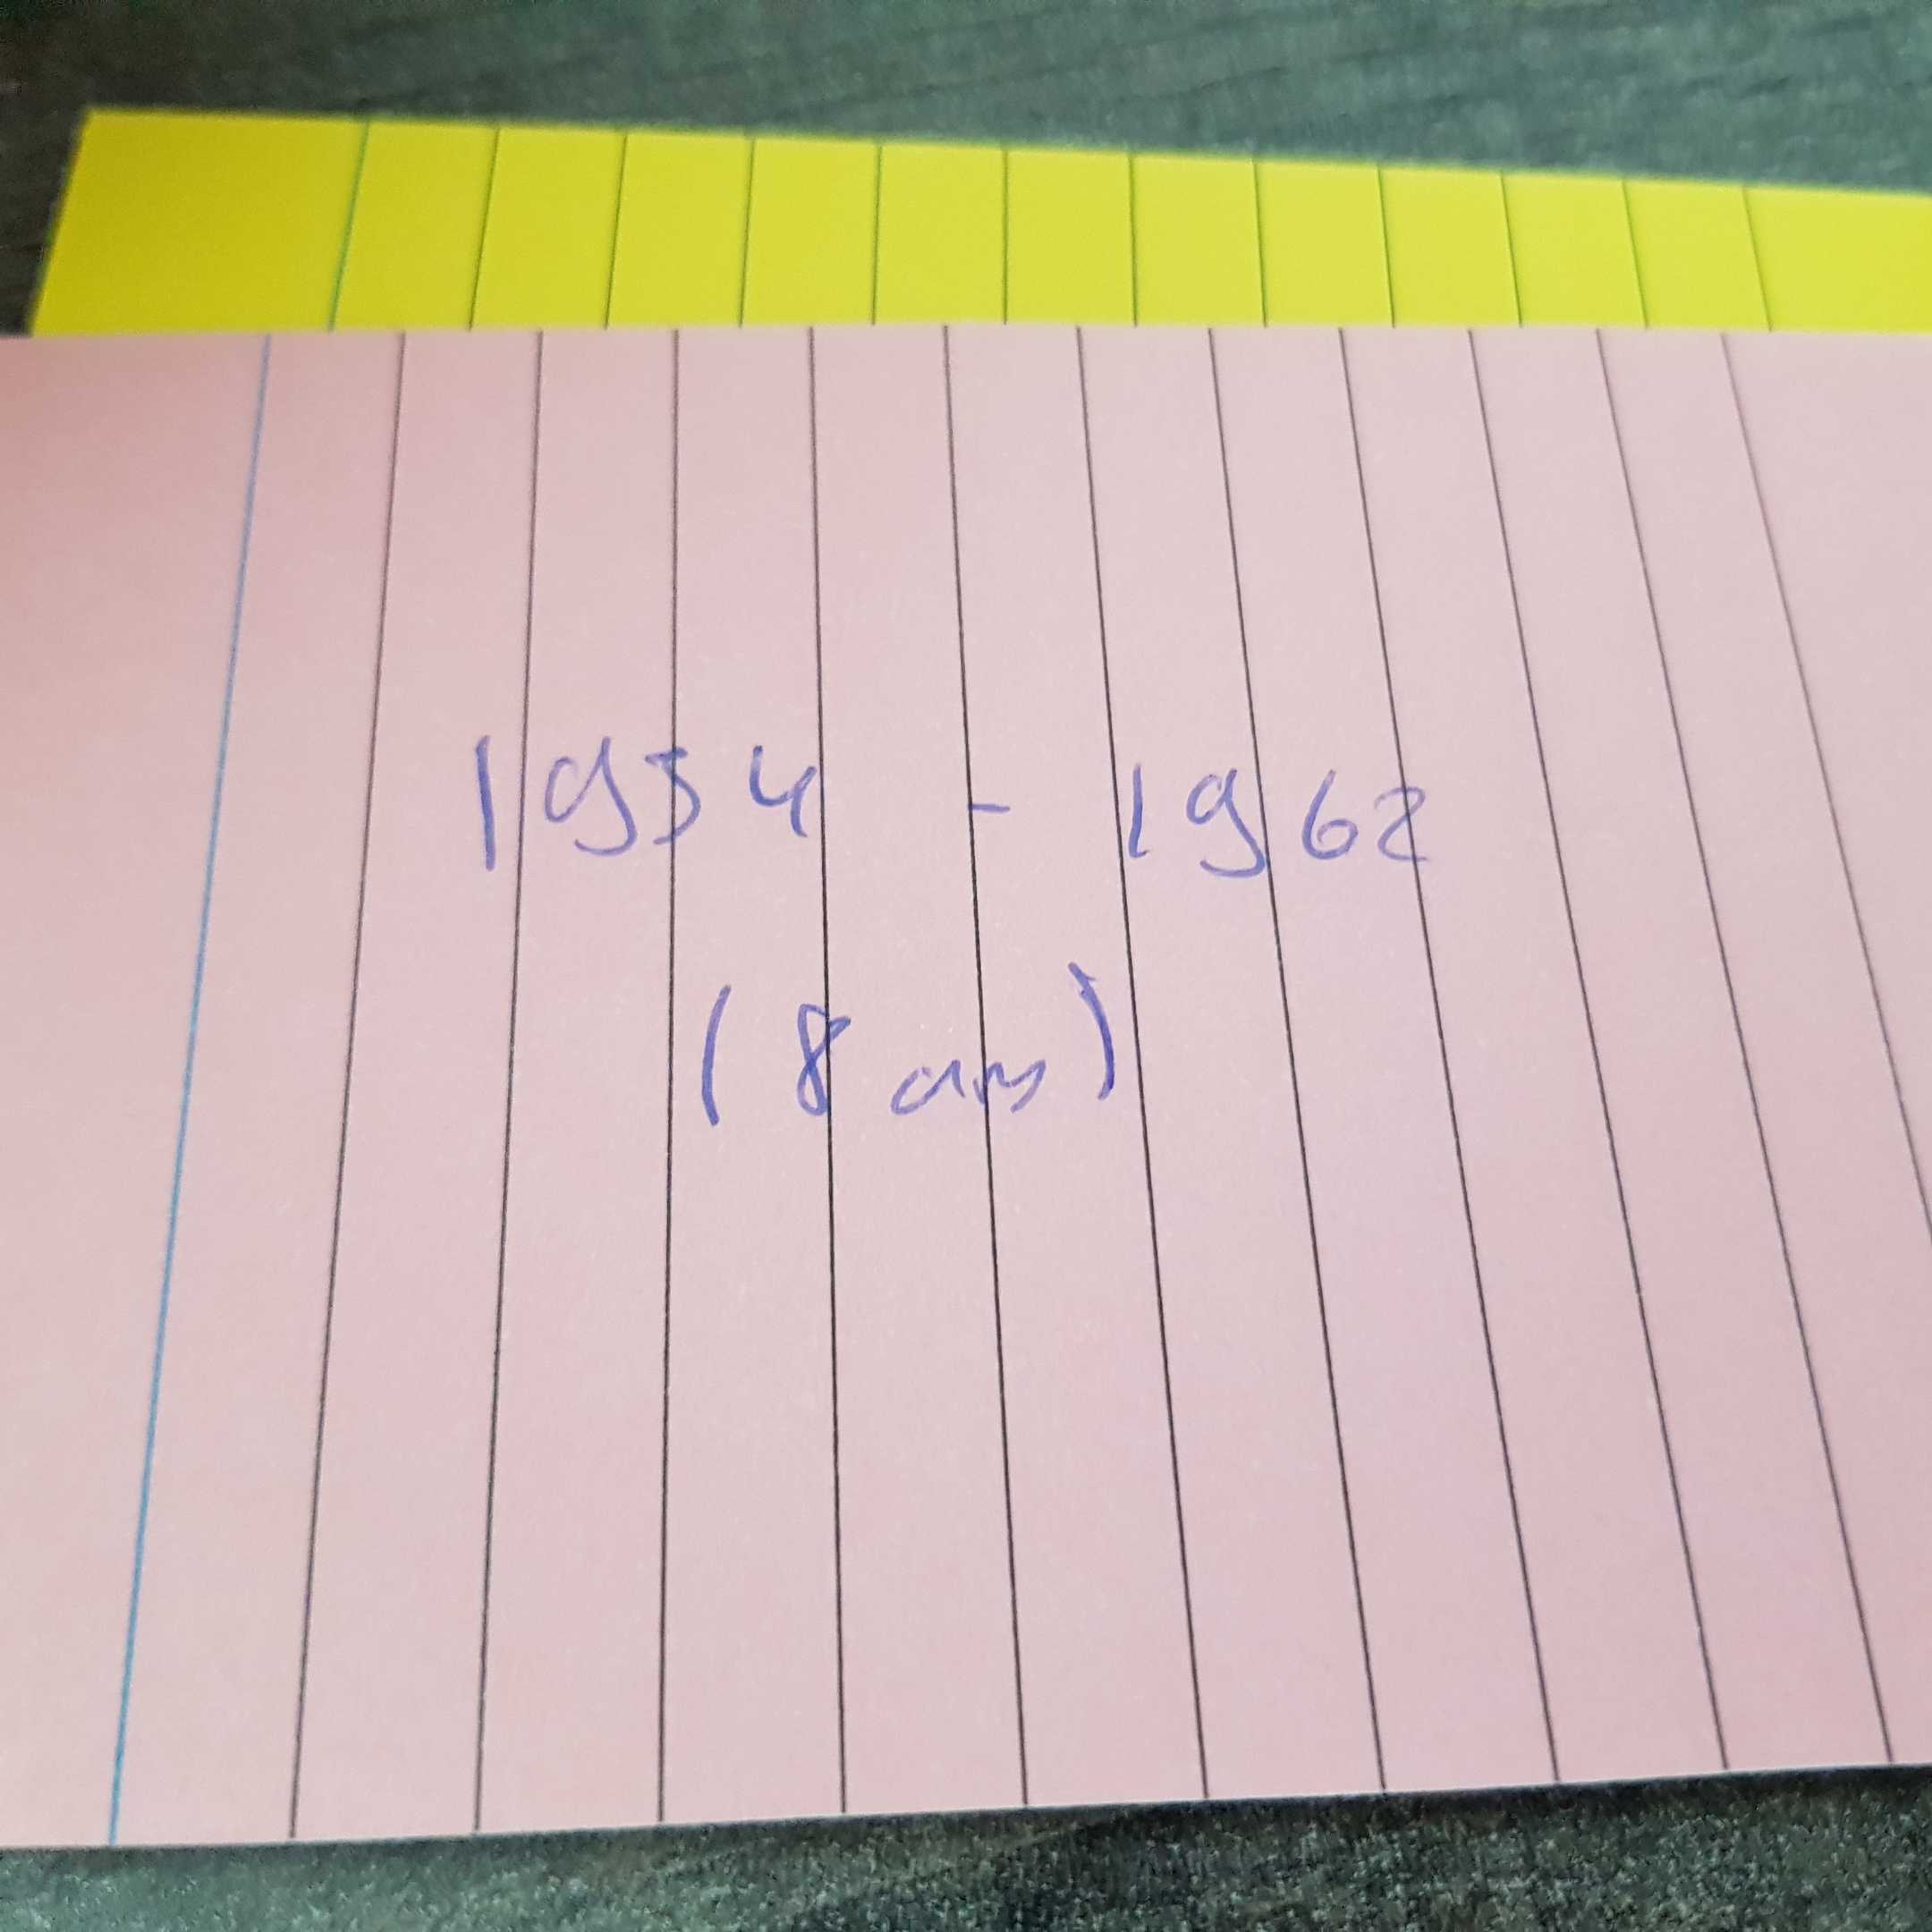 1954 - 1962
(8 ans)